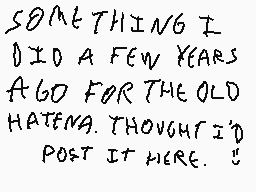 SOMETHING I
DID A FEW YEARS
AGO FOR THE OLD
HATENA. THOUGHT I'D
POST IT HERE. :)